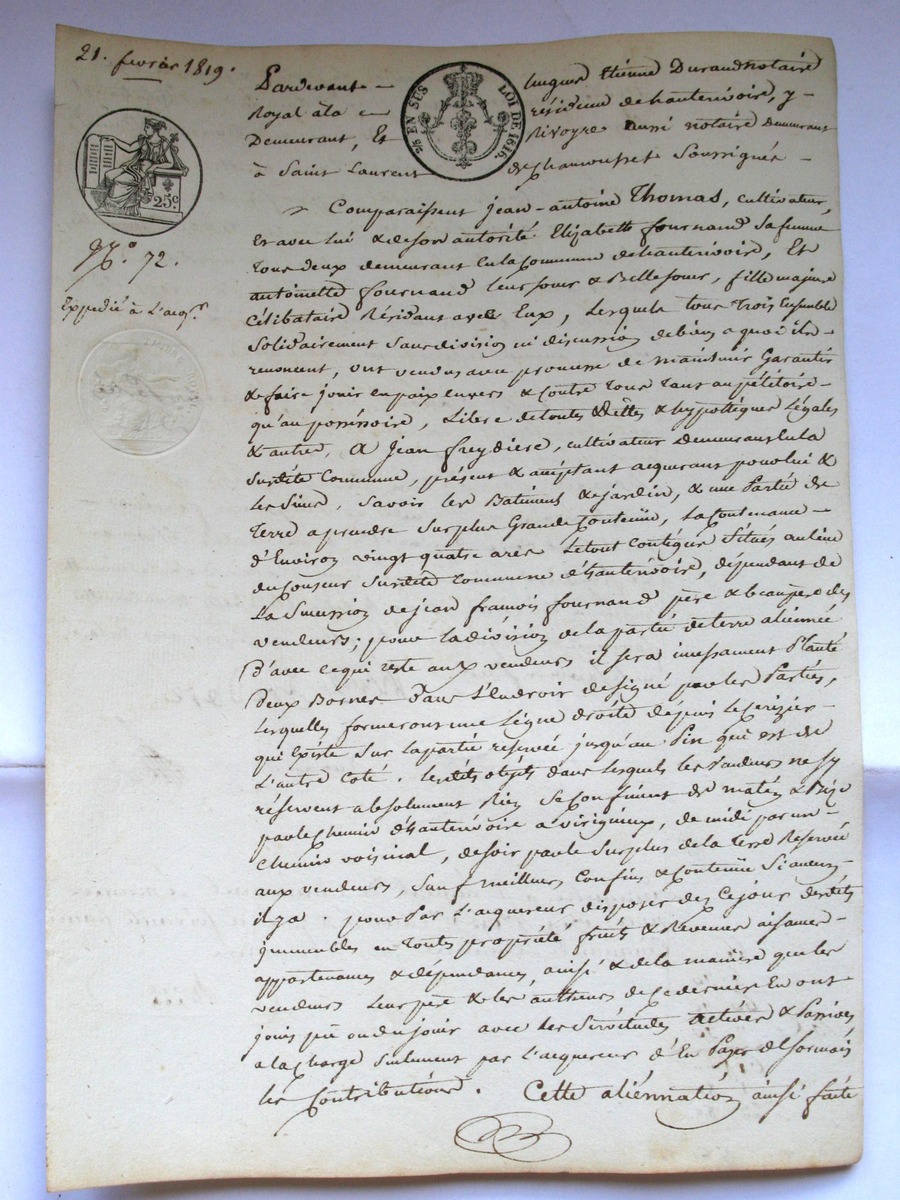 21. fevrier 1819.
Pardevant hugues Etienne Durand notaire
Royal à la résidence de hauterivoire, y
Demeurant, Et Rivoyre aussi notaire Demeurant
à Saint Laurent de Chamousset Soussignés
25 EN SUS LOI DE 1816.
25c.
N.o 72.
Expedié à L'acq.r
Comparaissent jean-antoine Thomas, cultivateur,
Et avec Lui & de son autorité Elizabeth fournand Sa femme
Tous deux demeurant En la Commune de hauterivoire, Et
antoinette fournand leur soeur & Belle soeur, fille majeure
Célibataire Résidant avec Eux, Lesquels tous Trois Ensemble
Solidairement Sans division ni discussion de biens a quoi ils
renoncent, ont vendu avec promesse de maintenir Garantir
& faire jouir en paix envers & contre Tous Tant au pétitoire
qu'au possessoire, Libre de toutes dettes & hypothèques Légales
& autres, A Jean freydiere, cultivateur Demeurant En la
Susdite Commune, présent & acceptant acquerant pour lui &
Les Siens, Savoir les Batiments & jardin, & une Partie de
Terre a prendre Sur plus Grande Contenüe, La Contenance
d'Environ vingt quatre ares Le tout Contigus Situés au lieu
du Susdite Commune d'hauterivoire, dépendant de
La Succession de jean francois fournand père & beaupère des
vendeurs; pour la division de la partie de terre aliennée
D'avec ce qui reste aux vendeurs il sera incessament Planté
Deux Bornes Dans L'Endroit designé par les Parties,
Lesquelles formeront une Ligne droite depuis Le serizier
qui Existe Sur la partie reservée jusqu'au Pin qui est de
L'autre Coté. Lesdits objets dans Lesquels les Vendeurs ne s'y
réservent absolument Rien Se Confinent de matin & Bize
par le Chemin d'hauterivoire a virigneux, de midi par un
Chemin voisinal, de soir par le Surplus de la Terre Reservée
aux vendeurs, Sauf meilleurs Confins & Contenüe Si aucuns
il y a. pour Par L'acquereur disposer des Ce jour desdits
immeubles en Toute propriété fruits & Revenus aisances
appartenances & dépendances, ainsi & de la maniere que les
vendeurs Leur père & les autheurs de Ce dernier En ont
joui pu ou dû jouir avec les Servitudes Actives & Passives
a la Charge Seulement par L'acquereur d'En Payer desormais
les Contributions. Cette aliennation ainsi faite